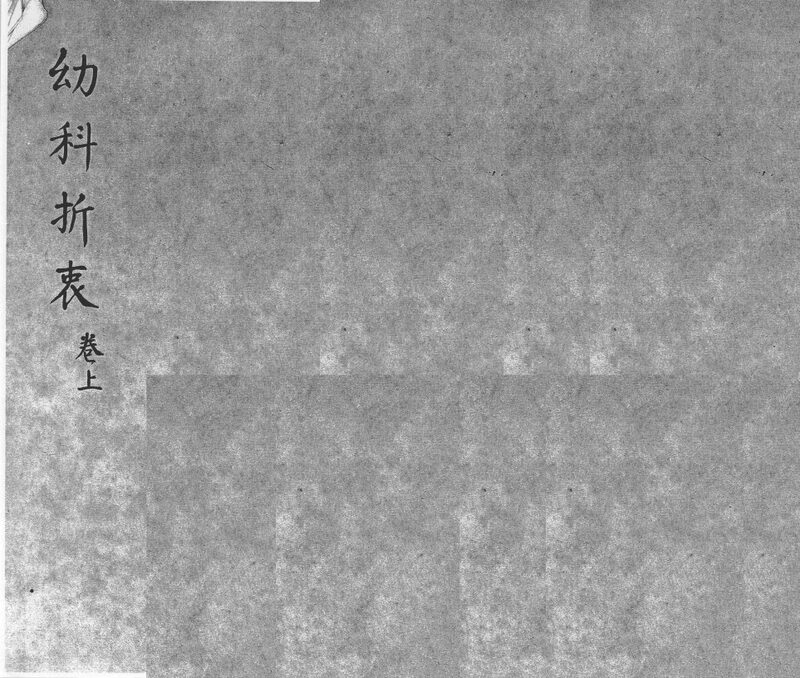 幼科折衷
卷上